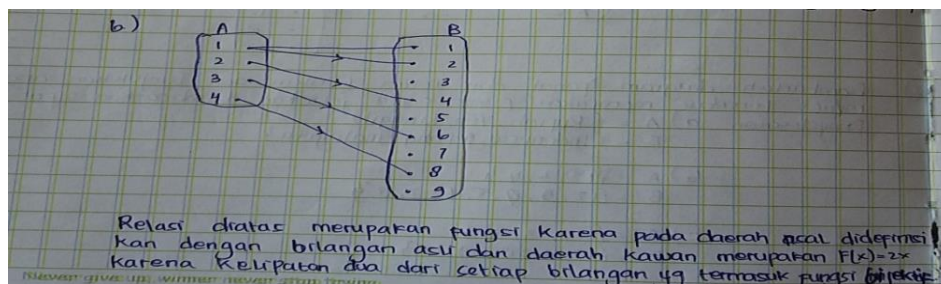 b)
A B
1 1
2 2
3 3
4 4
5
6
7
8
9
Relasi diatas merupakan fungsi karena pada daerah asal didefinisi
kan dengan bilangan asli dan daerah kawan merupakan F(x)=2x
karena kelipatan dua dari setiap bilangan yg termasuk fungsi
never give up, winner never stop trying